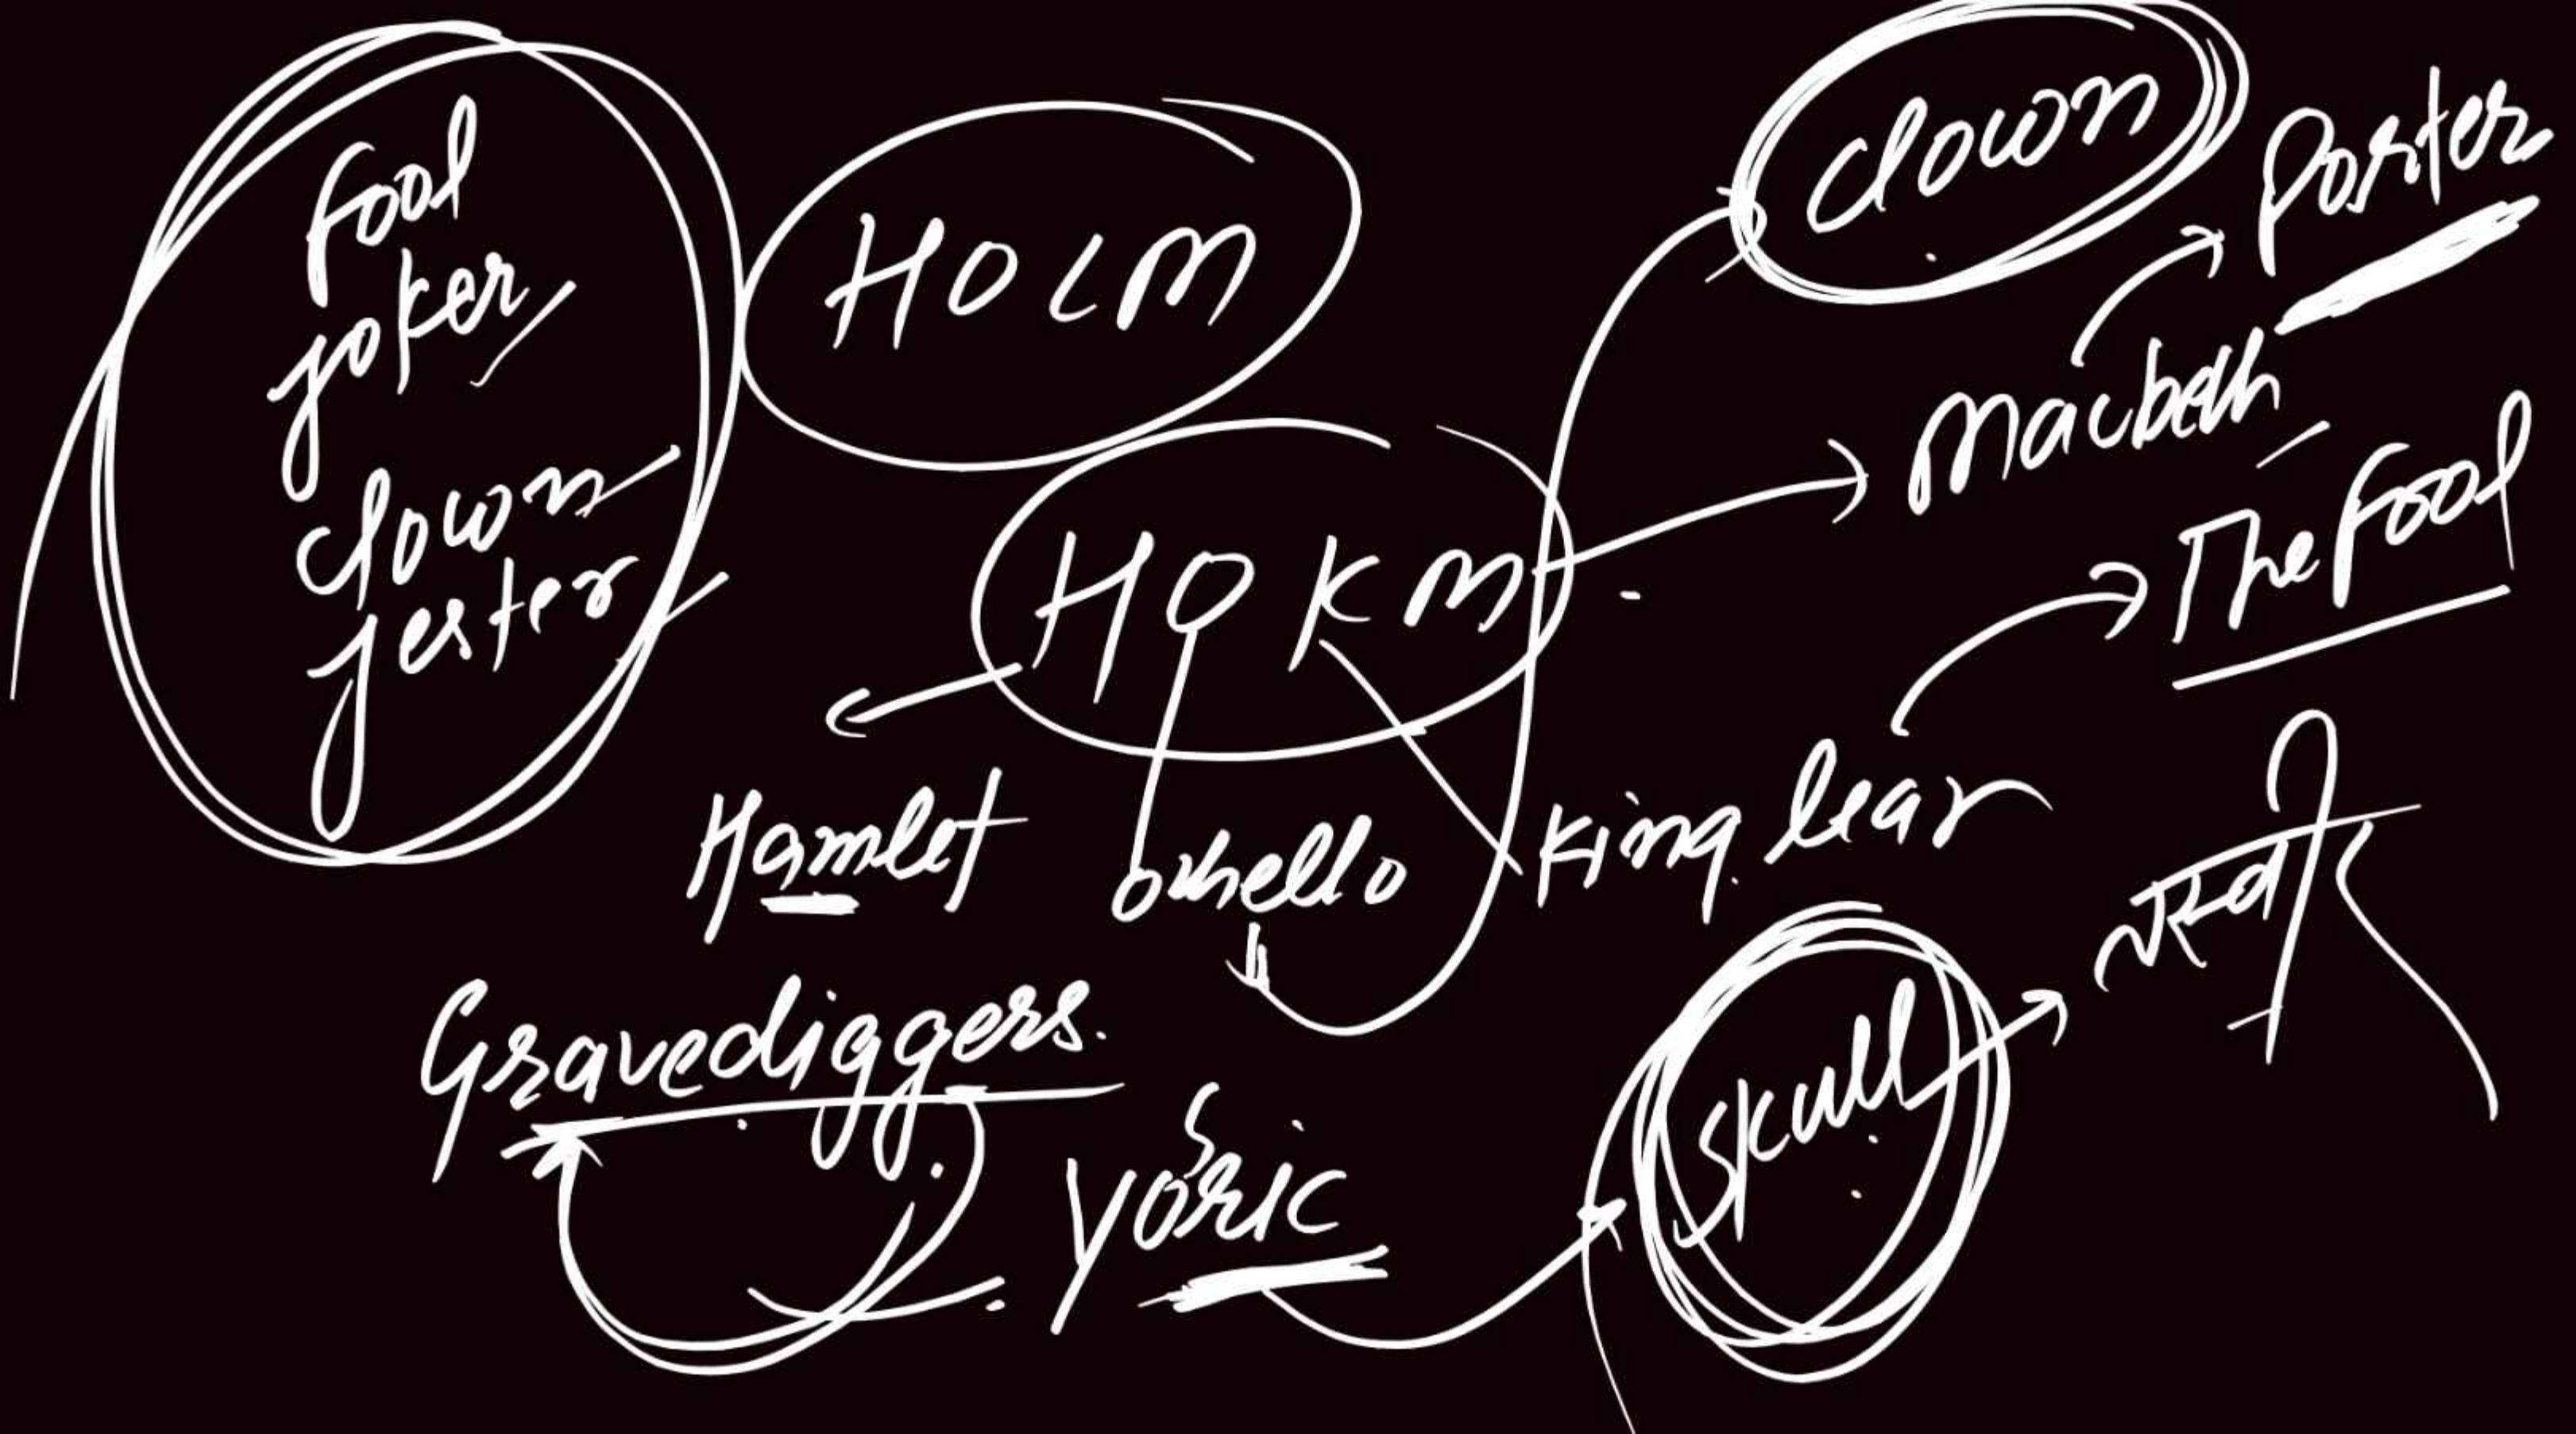 Fool
joker
clown
jester
HOLM
clown
Porter
Macbeth
The Fool
HOKM
Hamlet
othello
King lear
तस्वीर
Gravediggers.
Yoric
skull